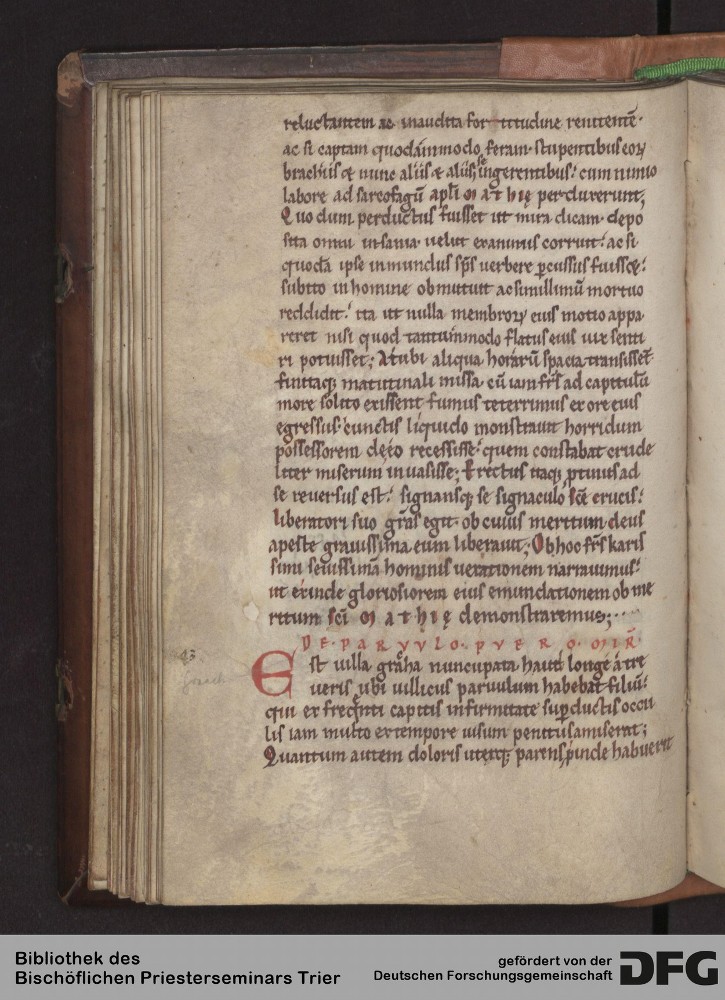 reluctantem ac inaudita fortitudine renitentē·
ac si captam quodāmmodo feram· stupentibus eoꝝ
brachiis & nunc aliis & aliis se ingerentibus· cum nimio
labore ad sarcofagū apl̄i MATHIĘ perduxerunt;
Quo dum perductus fuisset ut mira dicam· depo
sita omni insania· uelut exanimis corruit· ac si
quodā ipse inmundus sp̄s uerbere ꝑcussus fuisset·
subito in homine obmutuit ac simillimū mortuo
reddidit· ita ut nulla membroꝝ eius motio appa
reret nisi quod tantummodo flatus eius uix senti
ri potuisset; At ubi aliqua horarū spacia transissēt
finitaq; matutinali missa· cū iam fr̄s ad capitulū
more solito exissent· fumus teterrimus ex ore eius
egressus· cunctis liquido monstrauit horridum
possessorem de eo recessisse· quem constabat crude
liter miserum inuasisse; Erectus itaq; ꝓtinus ad
se reuersus est· signansq; se signaculo sc̄ę crucis·
liberatori suo gr̄as egit· ob cuius meritum deus
a peste grauissima eum liberauit; Ob hoc fr̄s karis
simi seuissimā hominis uexationem narrauimus·
ut exinde gloriosiorem eius emundationem ob me
ritum sc̄i MATHIĘ demonstraremus;
DE·PARVVLO·PVERO·MIR̄·
Est uilla gracha nuncupata haud longe a tre
ueris ubi uillicus paruulum habebat filiū·
qui ex frequenti capitis infirmitate suꝑductis occu
lis iam multo ex tempore uisum penitus amiserat;
Quantum autem doloris uterq; parens ꝓinde habuerit
43
Bibliothek des
Bischöflichen Priesterseminars Trier
gefördert von der
Deutschen Forschungsgemeinschaft
DFG